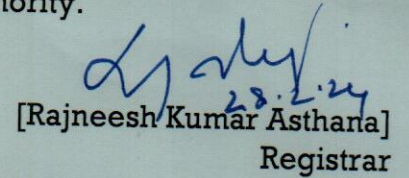 ority.
28.2.24
[Rajneesh Kumar Asthana]
Registrar